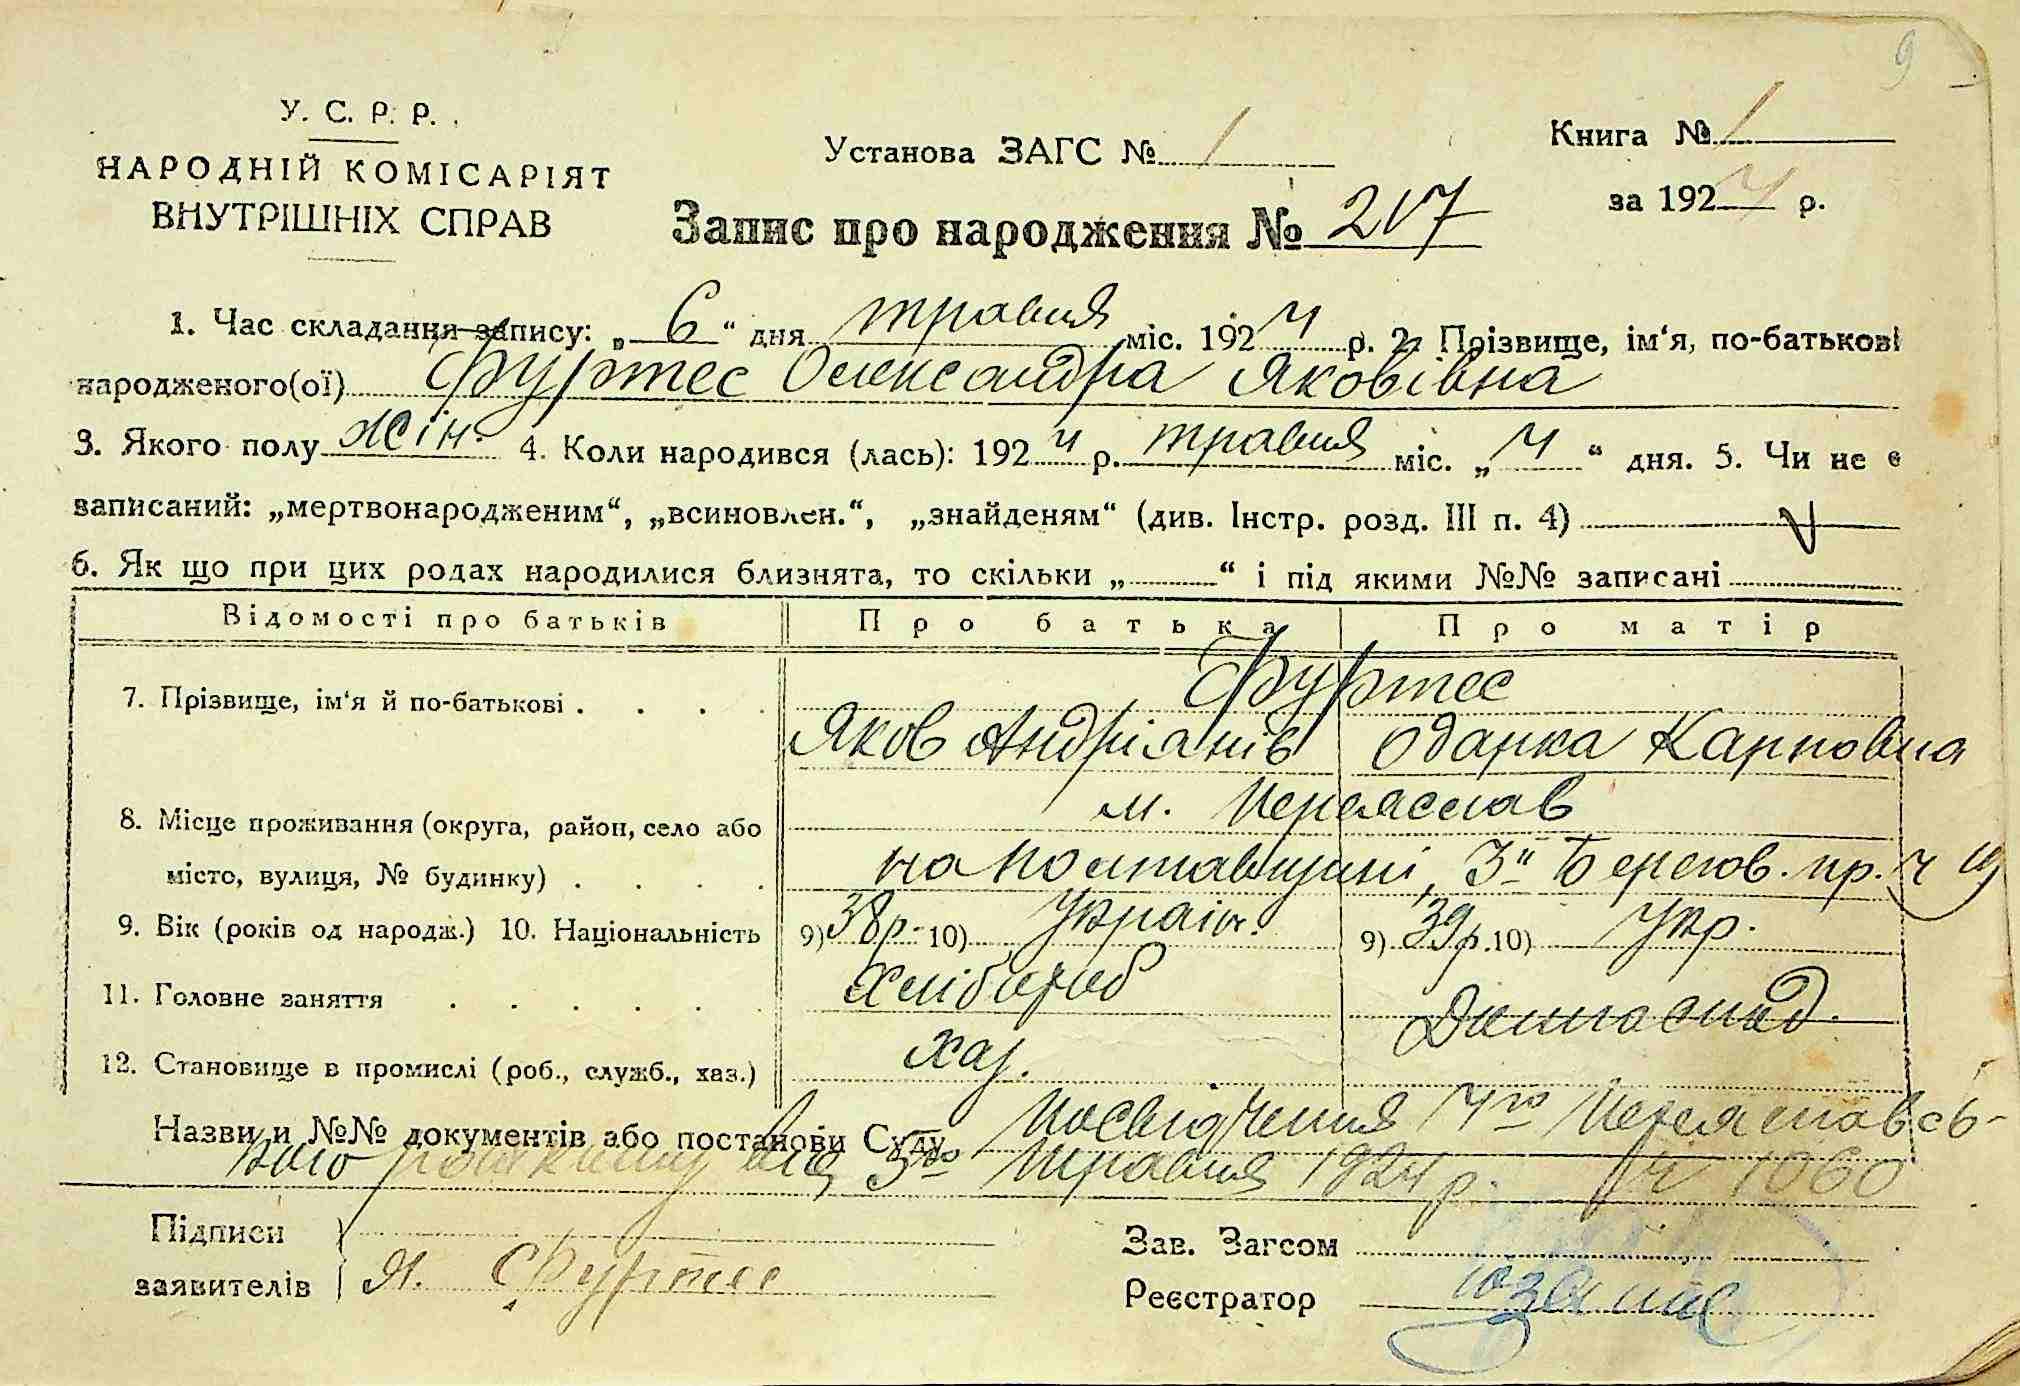 9
У. С. Р. Р.
НАРОДНІЙ КОМІСАРІЯТ
ВНУТРІШНІХ СПРАВ
Установа ЗАГС № 1
Книга № 1
за 1924 р.
Запис про народження № 217
1. Час складання запису: „6“ дня травня міс. 1924 р. 2. Прізвище, ім‘я, по-батькові
народженого(ої) Фуртес Олександра Яковівна
3. Якого полу жін. 4. Коли народився (лась): 1924 р. травня міс. „4“ дня. 5. Чи не є
записаний: „мертвонародженим“, „всиновлен.“, „знайденям“ (див. Інстр. розд. III п. 4)
6. Як що при цих родах народилися близнята, то скільки „ “ і під якими №№ записані
Відомості про батьків Про батька Про матір
7. Прізвище, ім‘я й по-батькові . . . . Фуртес
Яков Андріянів Одарка Карповна
8. Місце проживання (округа, район, село або м. Переяслав
місто, вулиця, № будинку) . . . . на Полтавщині, 3й Берегов. пр. ч 19
9. Вік (років од народж.) 10. Національність 9) 38 р. 10) Україн. 9) 39 р. 10) Укр.
11. Головне заняття . . . . . . Хлібороб Домогоспод.
12. Становище в промислі (роб., служб., хаз.) хаз.
Назви и №№ документів або постанови Суду Посвідчення 4го Переяславсь-
кого від 5го травня 1924 р. ч 1060
Підписи
заявителів Я. Фуртес
Зав. Загсом
Реєстратор